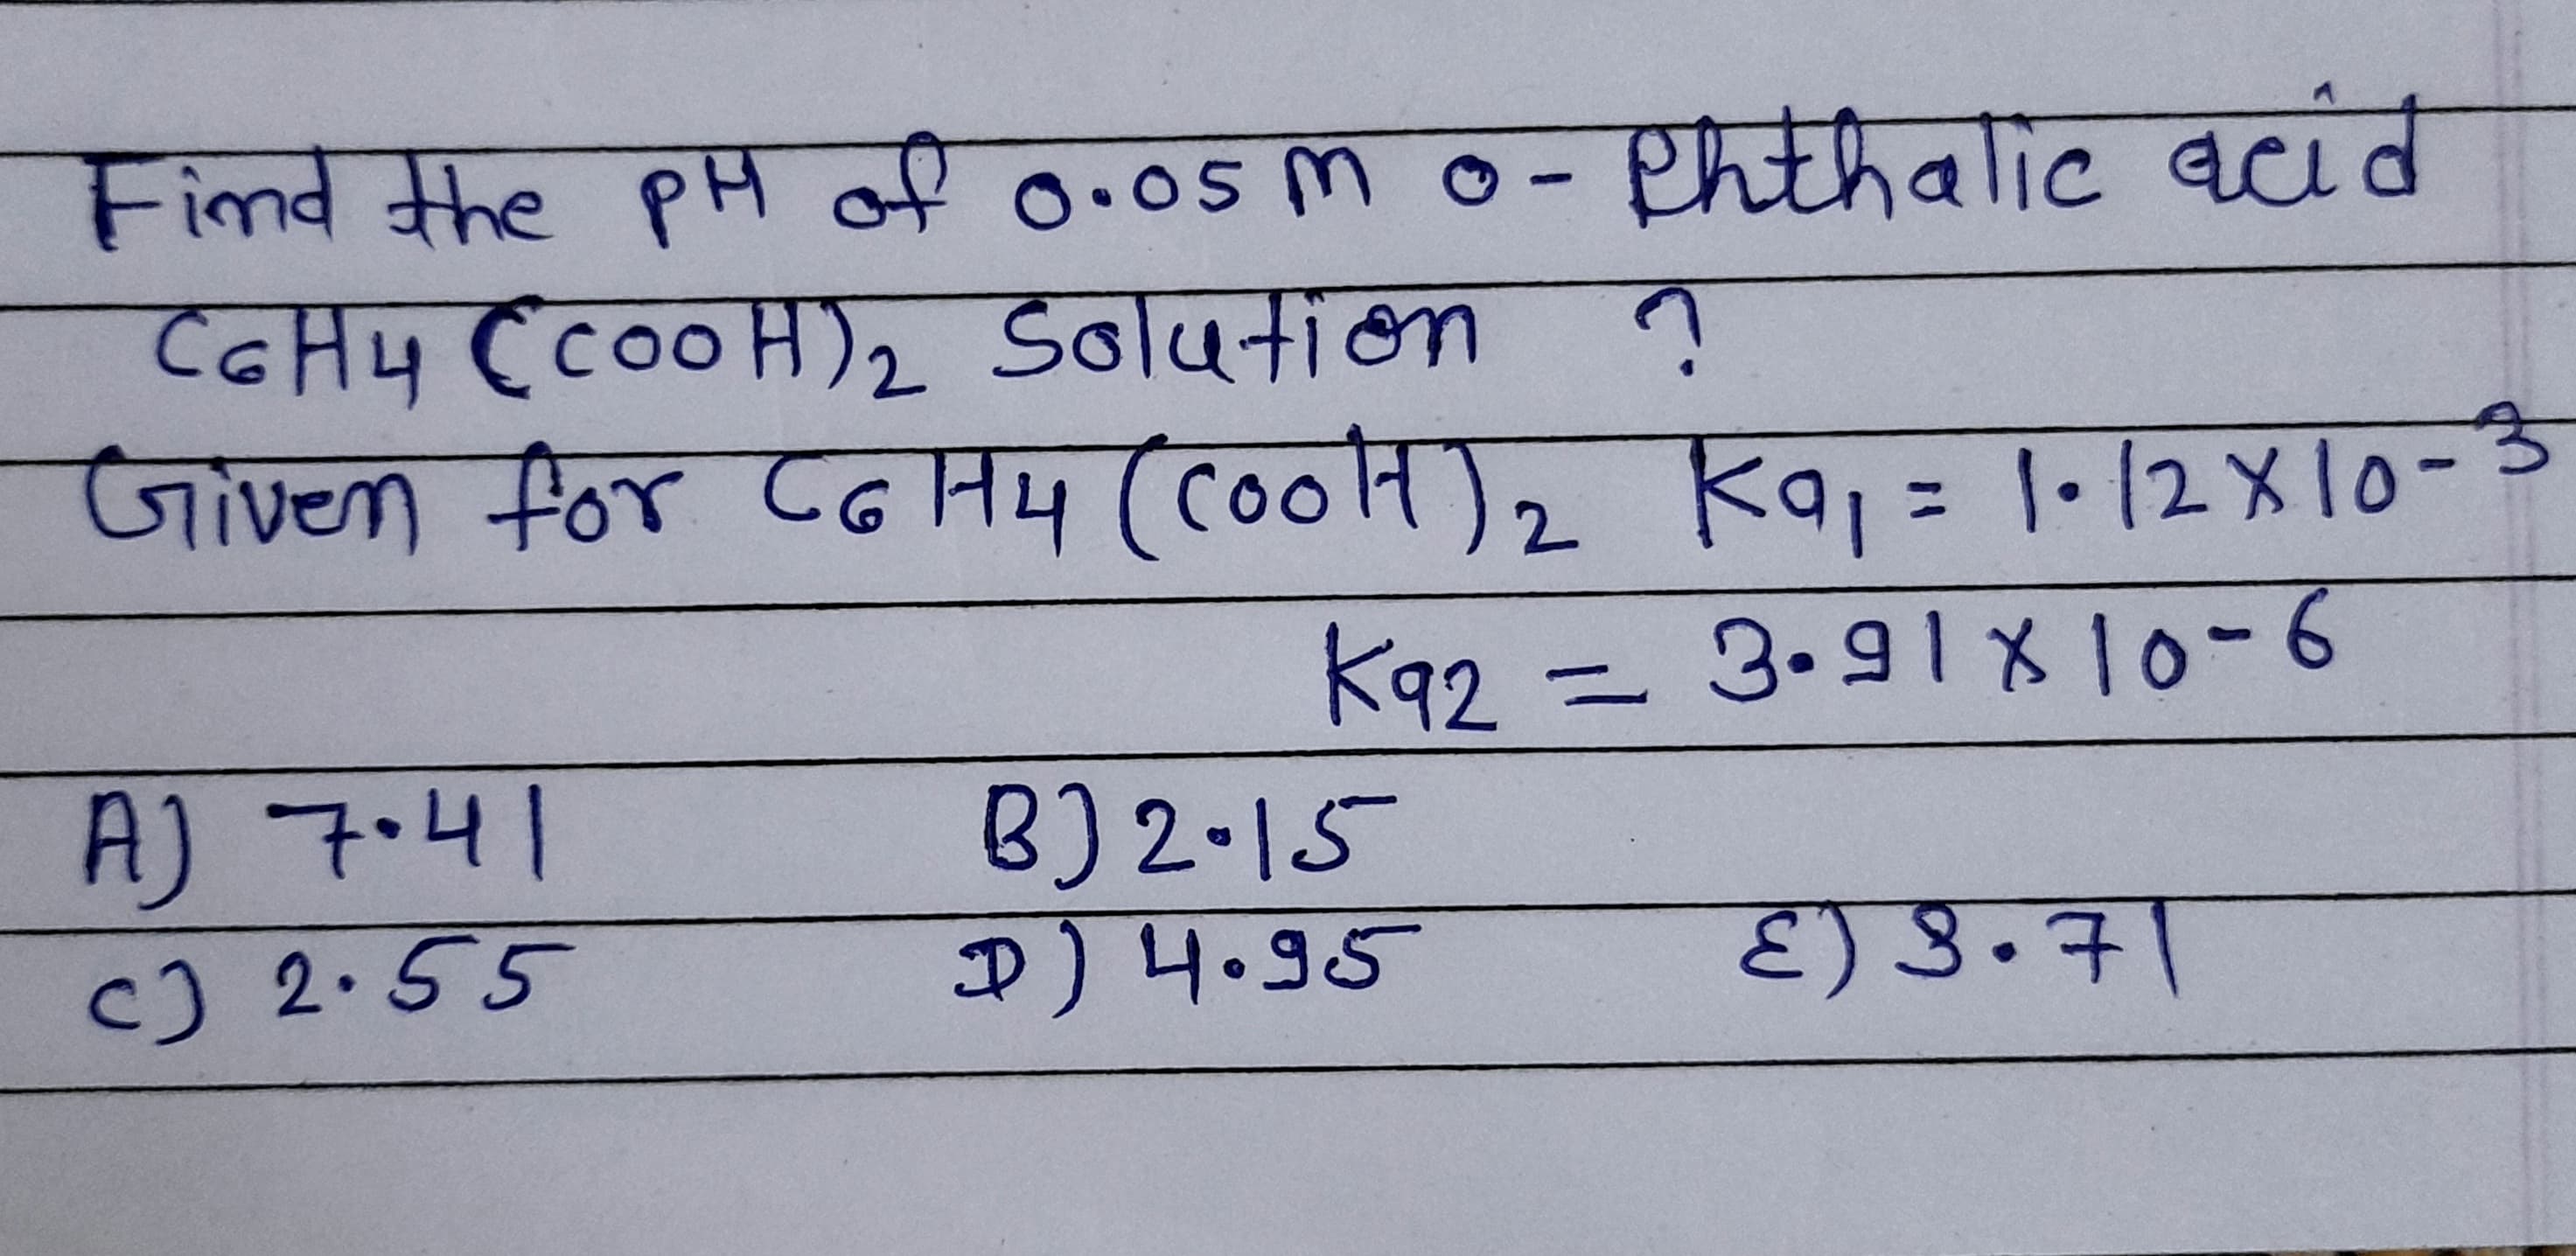 Find the PH of 0.05 M o- Phthalic acid
C6H4 (COOH)2 Solution ?
Given for C6H4 (COOH)2 Ka1 = 1.12 X 10-3
Ka2 = 3.91 X 10-6
A) 7.41 B) 2.15
C) 2.55 D) 4.95 E) 3.71